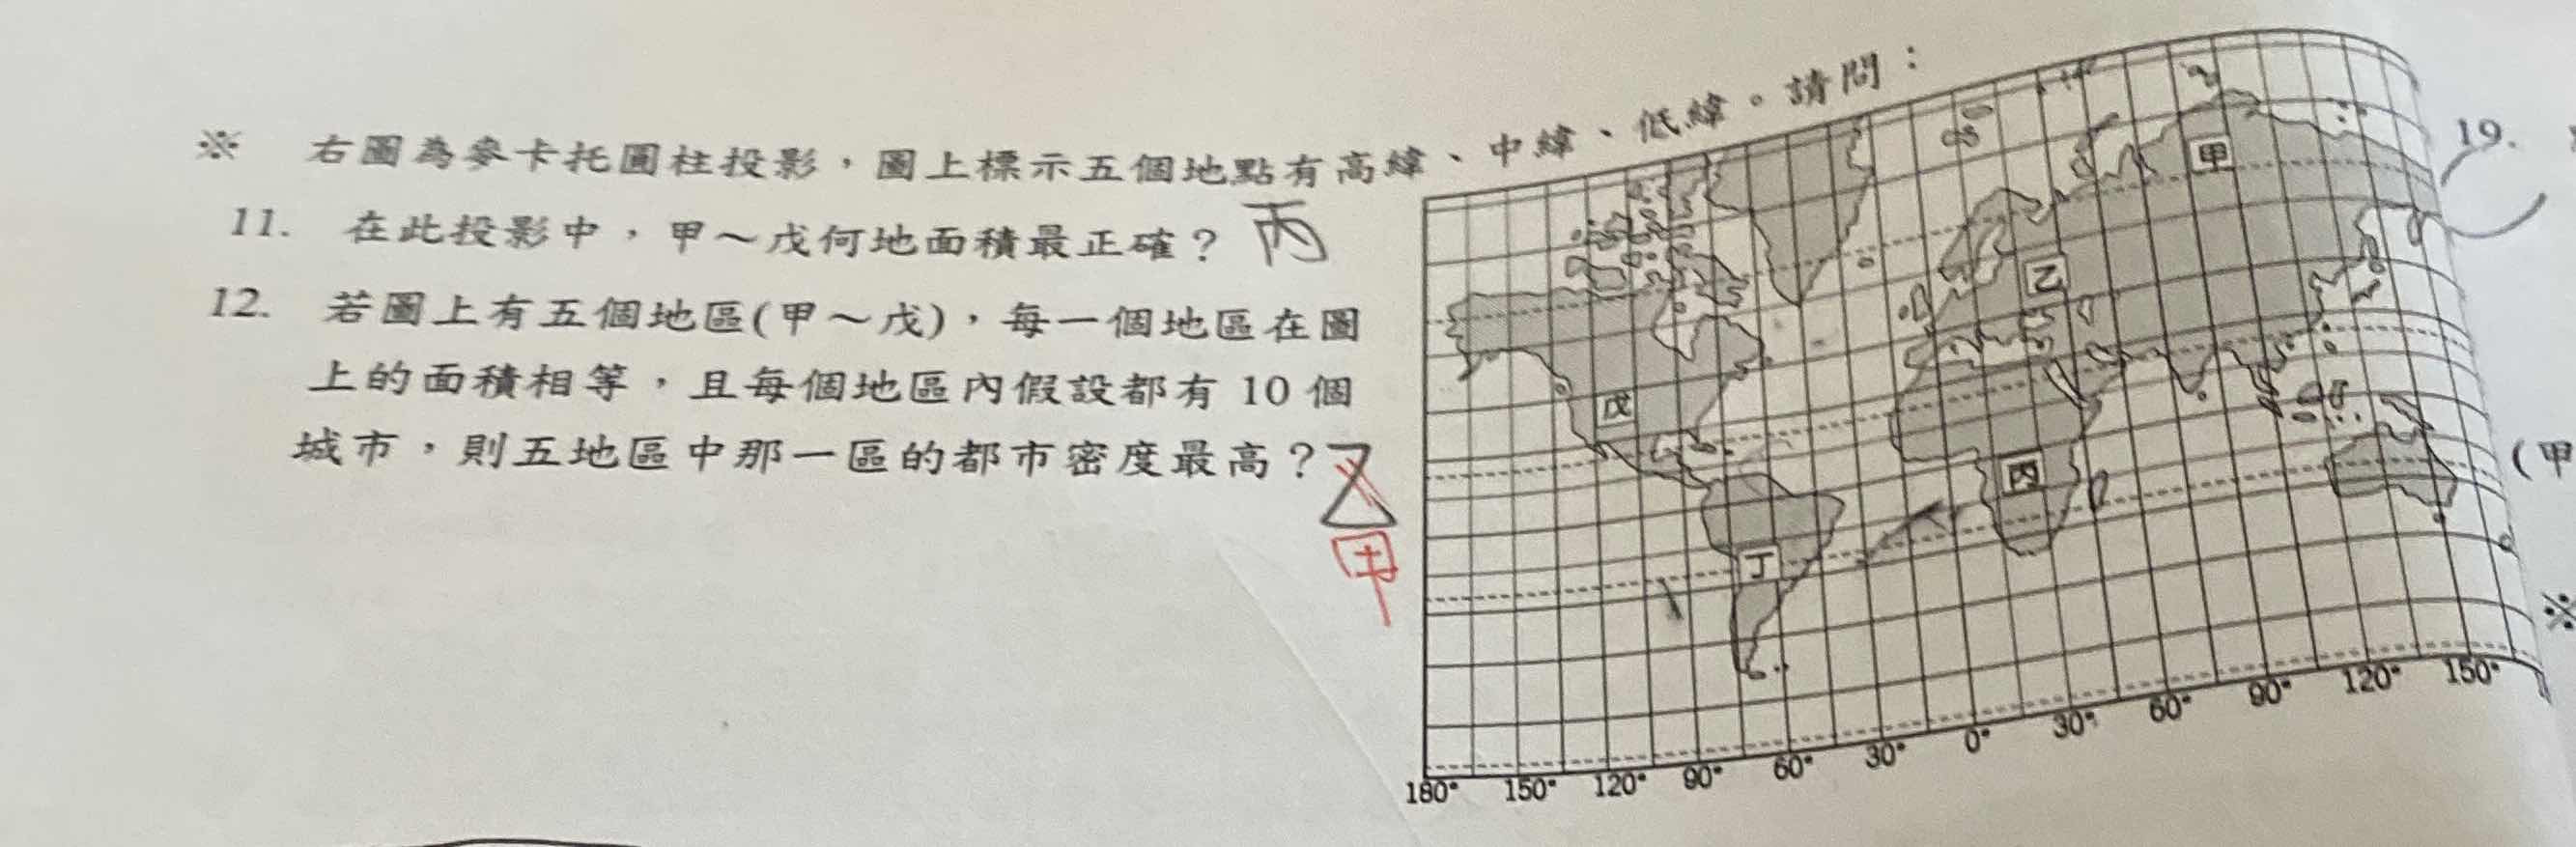 ※ 右圖為麥卡托圓柱投影，圖上標示五個地點有高緯、中緯、低緯。請問：
11. 在此投影中，甲～戊何地面積最正確？丙
12. 若圖上有五個地區(甲～戊)，每一個地區在圖
上的面積相等，且每個地區內假設都有 10 個
城市，則五地區中那一區的都市密度最高？乙
甲
甲
乙
戊
丙
丁
180° 150° 120° 90° 60° 30° 0° 30° 60° 90° 120° 150°
19.
(甲
※